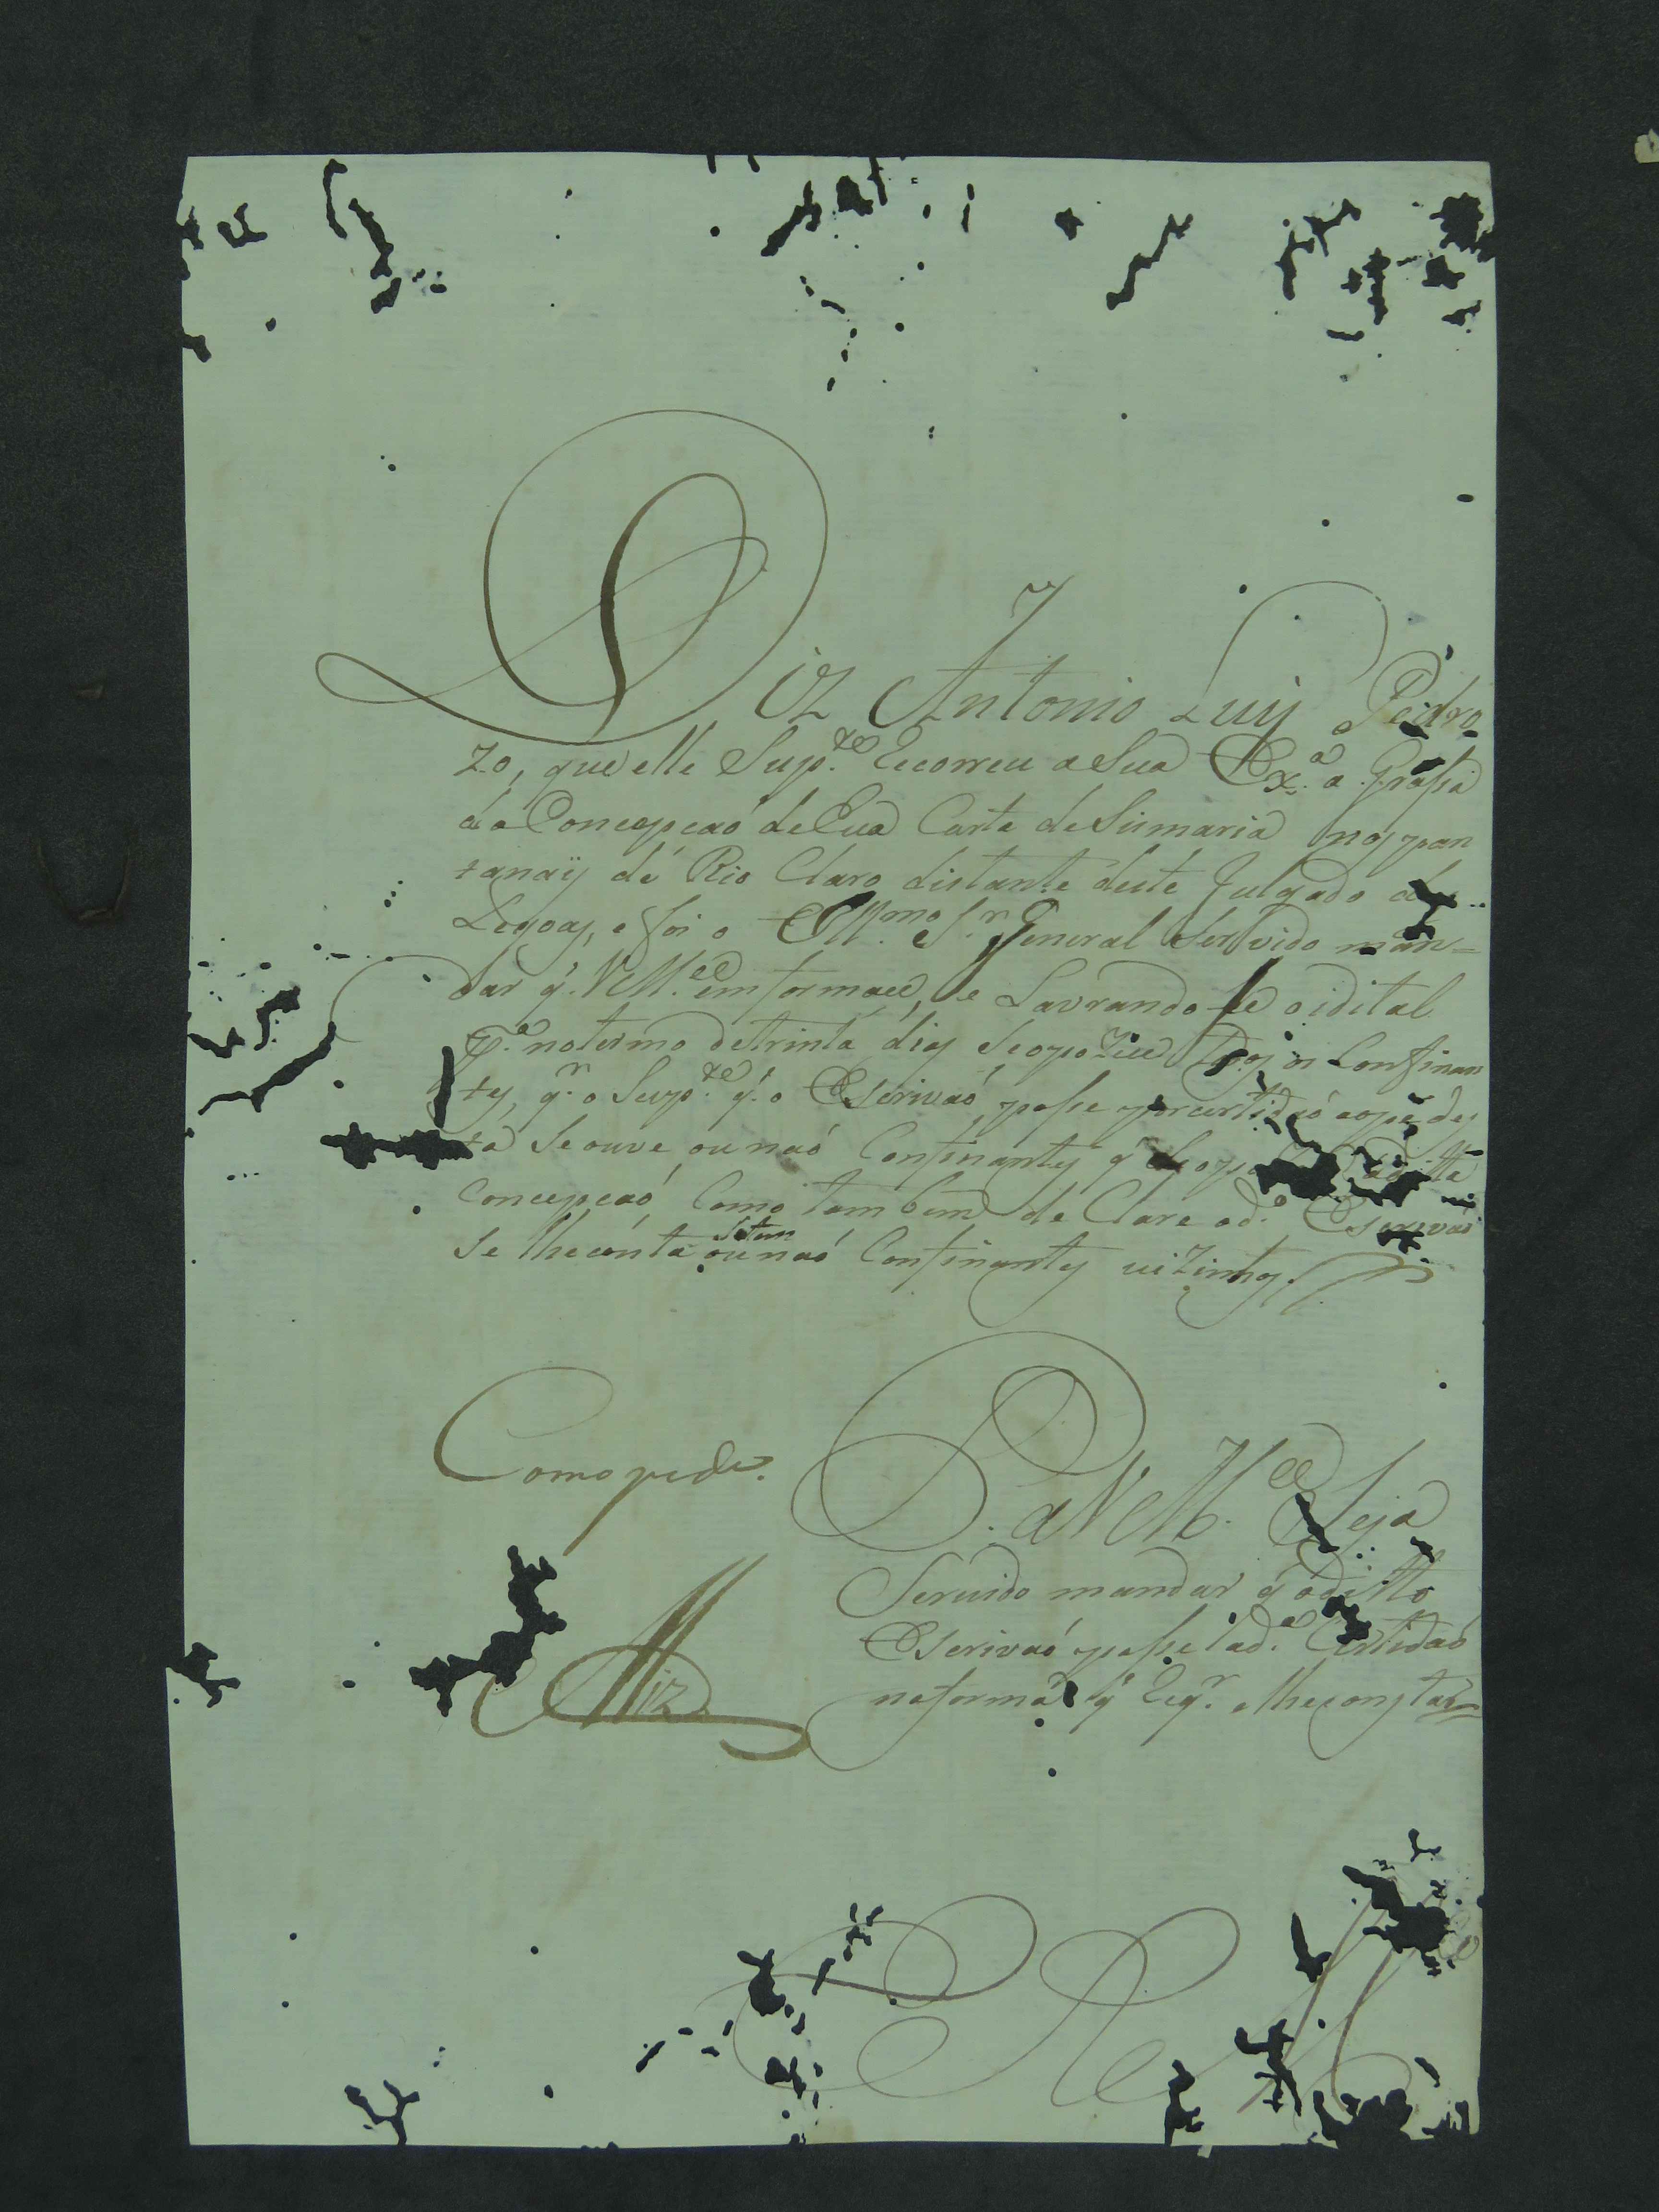 Diz Antonio Luiz Pedro
zo, que elle Sup.te Recorreu a Sua Ex.a a Grassa
da Concepçaó de Hua Carta de Sismaria nos pan
tanais dé Rio Claro distante deste Julgado
Legoas, e foi o Ill.mo S.r General Servido man=
dar q. VM.ce imformace, e Lavrando se o idital
p.a no termo de trinta dias se opozice os Confinan
tes, q.r o Sup.te q. o Escrivaó passe por certidaó ao pé des
ta Se ouve ou naó Confinantes q
Concepçaó, Como tambem de Clare o d.o Escrivaó
Se lhe consta Setem ou naó Confinantes vizinhos.
Como pede.
P. a VM.ce Seja
Servido mandar q o ditto
Escrivaó passe a d.a Certidaó
na forma q Req.r e lhe constar
R M